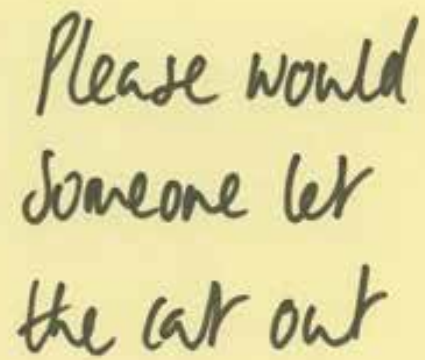 Please would
someone let
the cat out